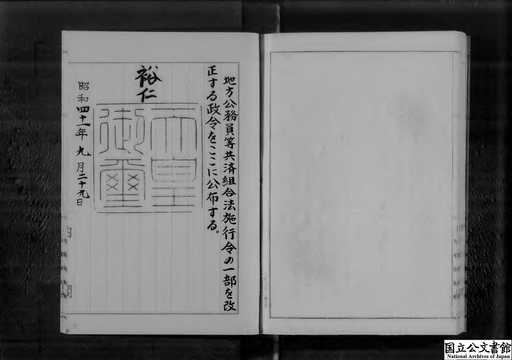 地方公務員等共済組合法施行令の一部を改
正する政令をここに公布する。
裕仁
天皇
御璽
昭和四十一年九月二十九日
国立公文書館
National Archives of Japan